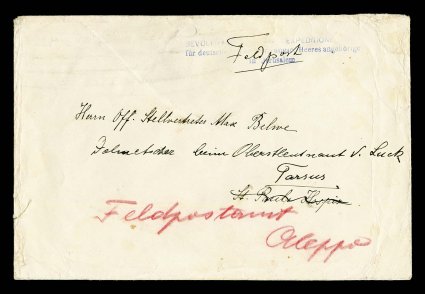 BEVOLLM EXPEDITION
für deutsche Heeresangehörige
in Jerusalem.
Feldpost
Herrn Off. Stellvertreter Max Below
Dolmetscher beim Oberstleutnant v. Luck
Tarsus
St. Pauls
Feldpostamt
Aleppo